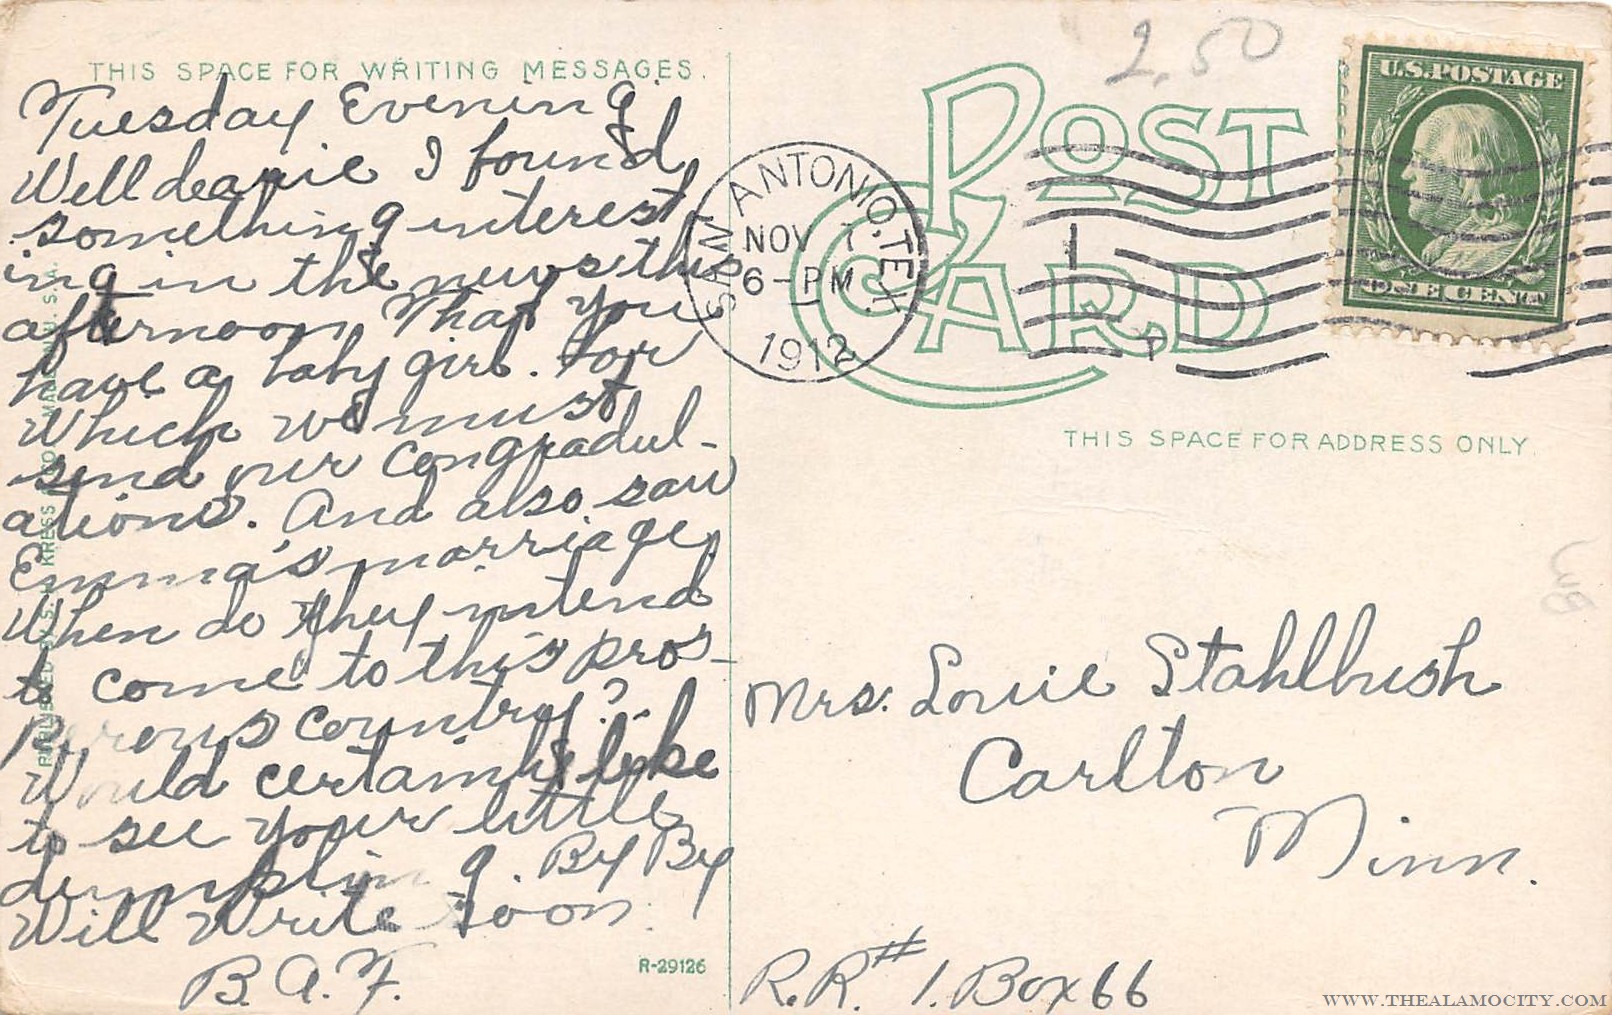 THIS SPACE FOR WRITING MESSAGES.
Tuesday Evening.
Well dearie I found
something interest
ing in the news this
afternoon That you
have a baby girl. For
Which we must
send our Congradul-
ations. And also saw
Emma's marriage,
When do they intend
to come to this pros-
perous country?
Would certainly like
to see your little
dumpling. By By
Will Write Soon
B. A. F.
PUBLISHED BY S. H. KRESS
R-29126
2.50
POST
CARD
SAN ANTONIO, TEX.
NOV 7
6-PM
1912
U.S. POSTAGE
ONE CENT
THIS SPACE FOR ADDRESS ONLY.
Mrs. Louie Stahlbush
Carlton
Minn.
R.R.# 1. Box 66
WWW.THEALAMOCITY.COM